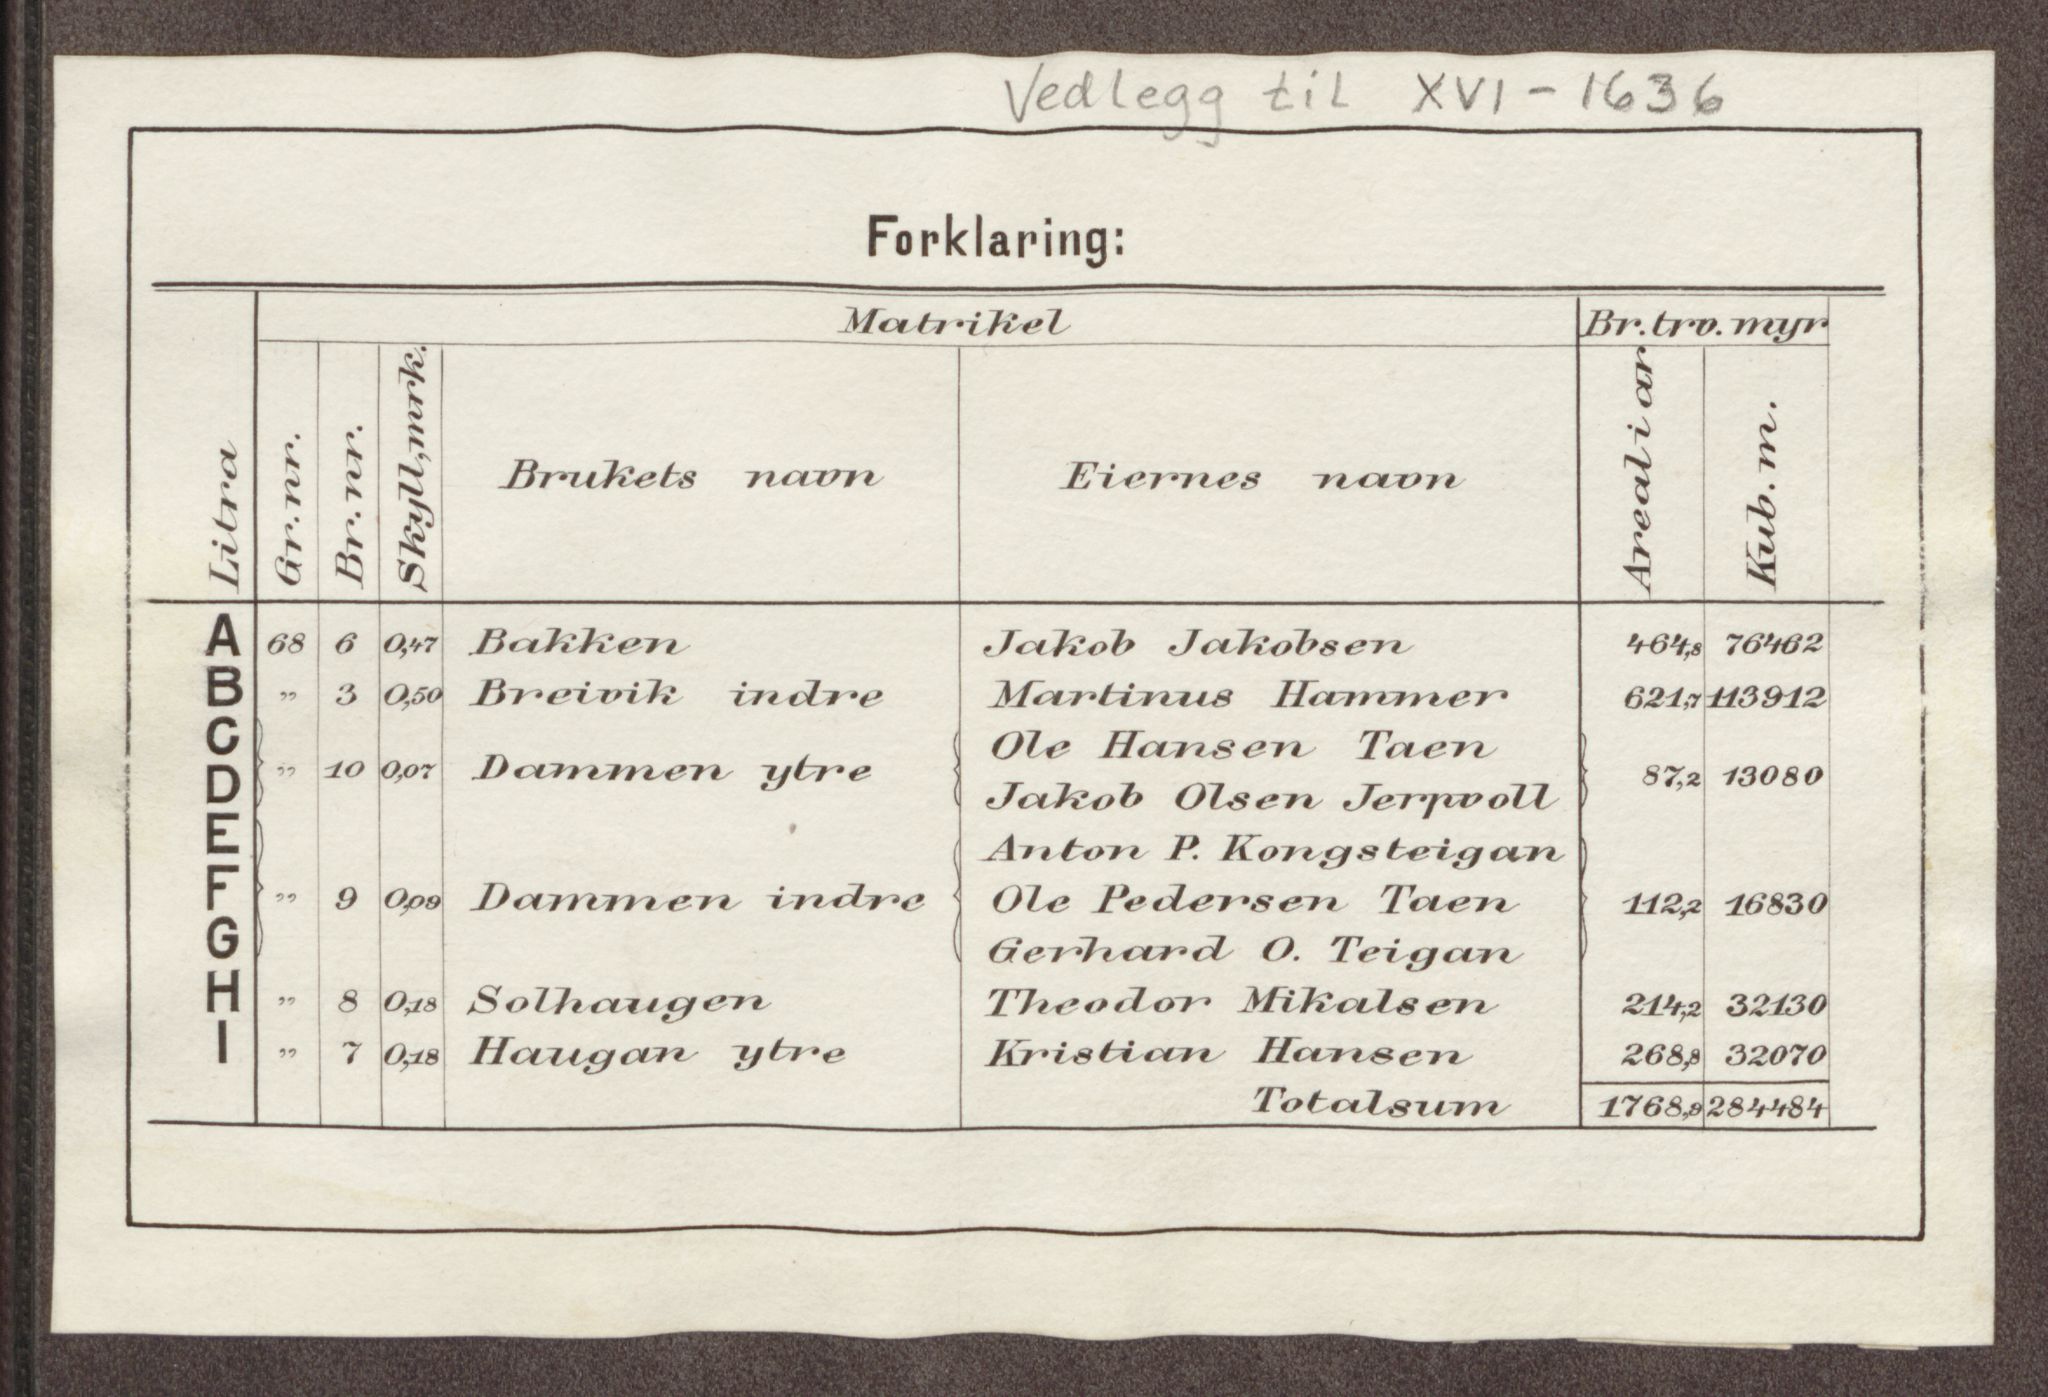 Vedlegg til XVI - 1636
Forklaring:
Matrikel Br.trv.myr
Litra Gr.nr. Br.nr. Skyll,mrk. Brukets navn Eiernes navn Areal i ar Kub.m.
A 68 6 0,47 Bakken Jakob Jakobsen 464,8 76462
B „ 3 0,50 Breivik indre Martinus Hammer 621,7 113912
C Ole Hansen Taen
„ 10 0,07 Dammen ytre 87,2 13080
D Jakob Olsen Jerpvoll
E Anton P. Kongsteigan
F „ 9 0,09 Dammen indre Ole Pedersen Taen 112,2 16830
G Gerhard O. Teigan
H „ 8 0,18 Solhaugen Theodor Mikalsen 214,2 32130
I „ 7 0,18 Haugan ytre Kristian Hansen 268,8 32070
Totalsum 1768,9 284484